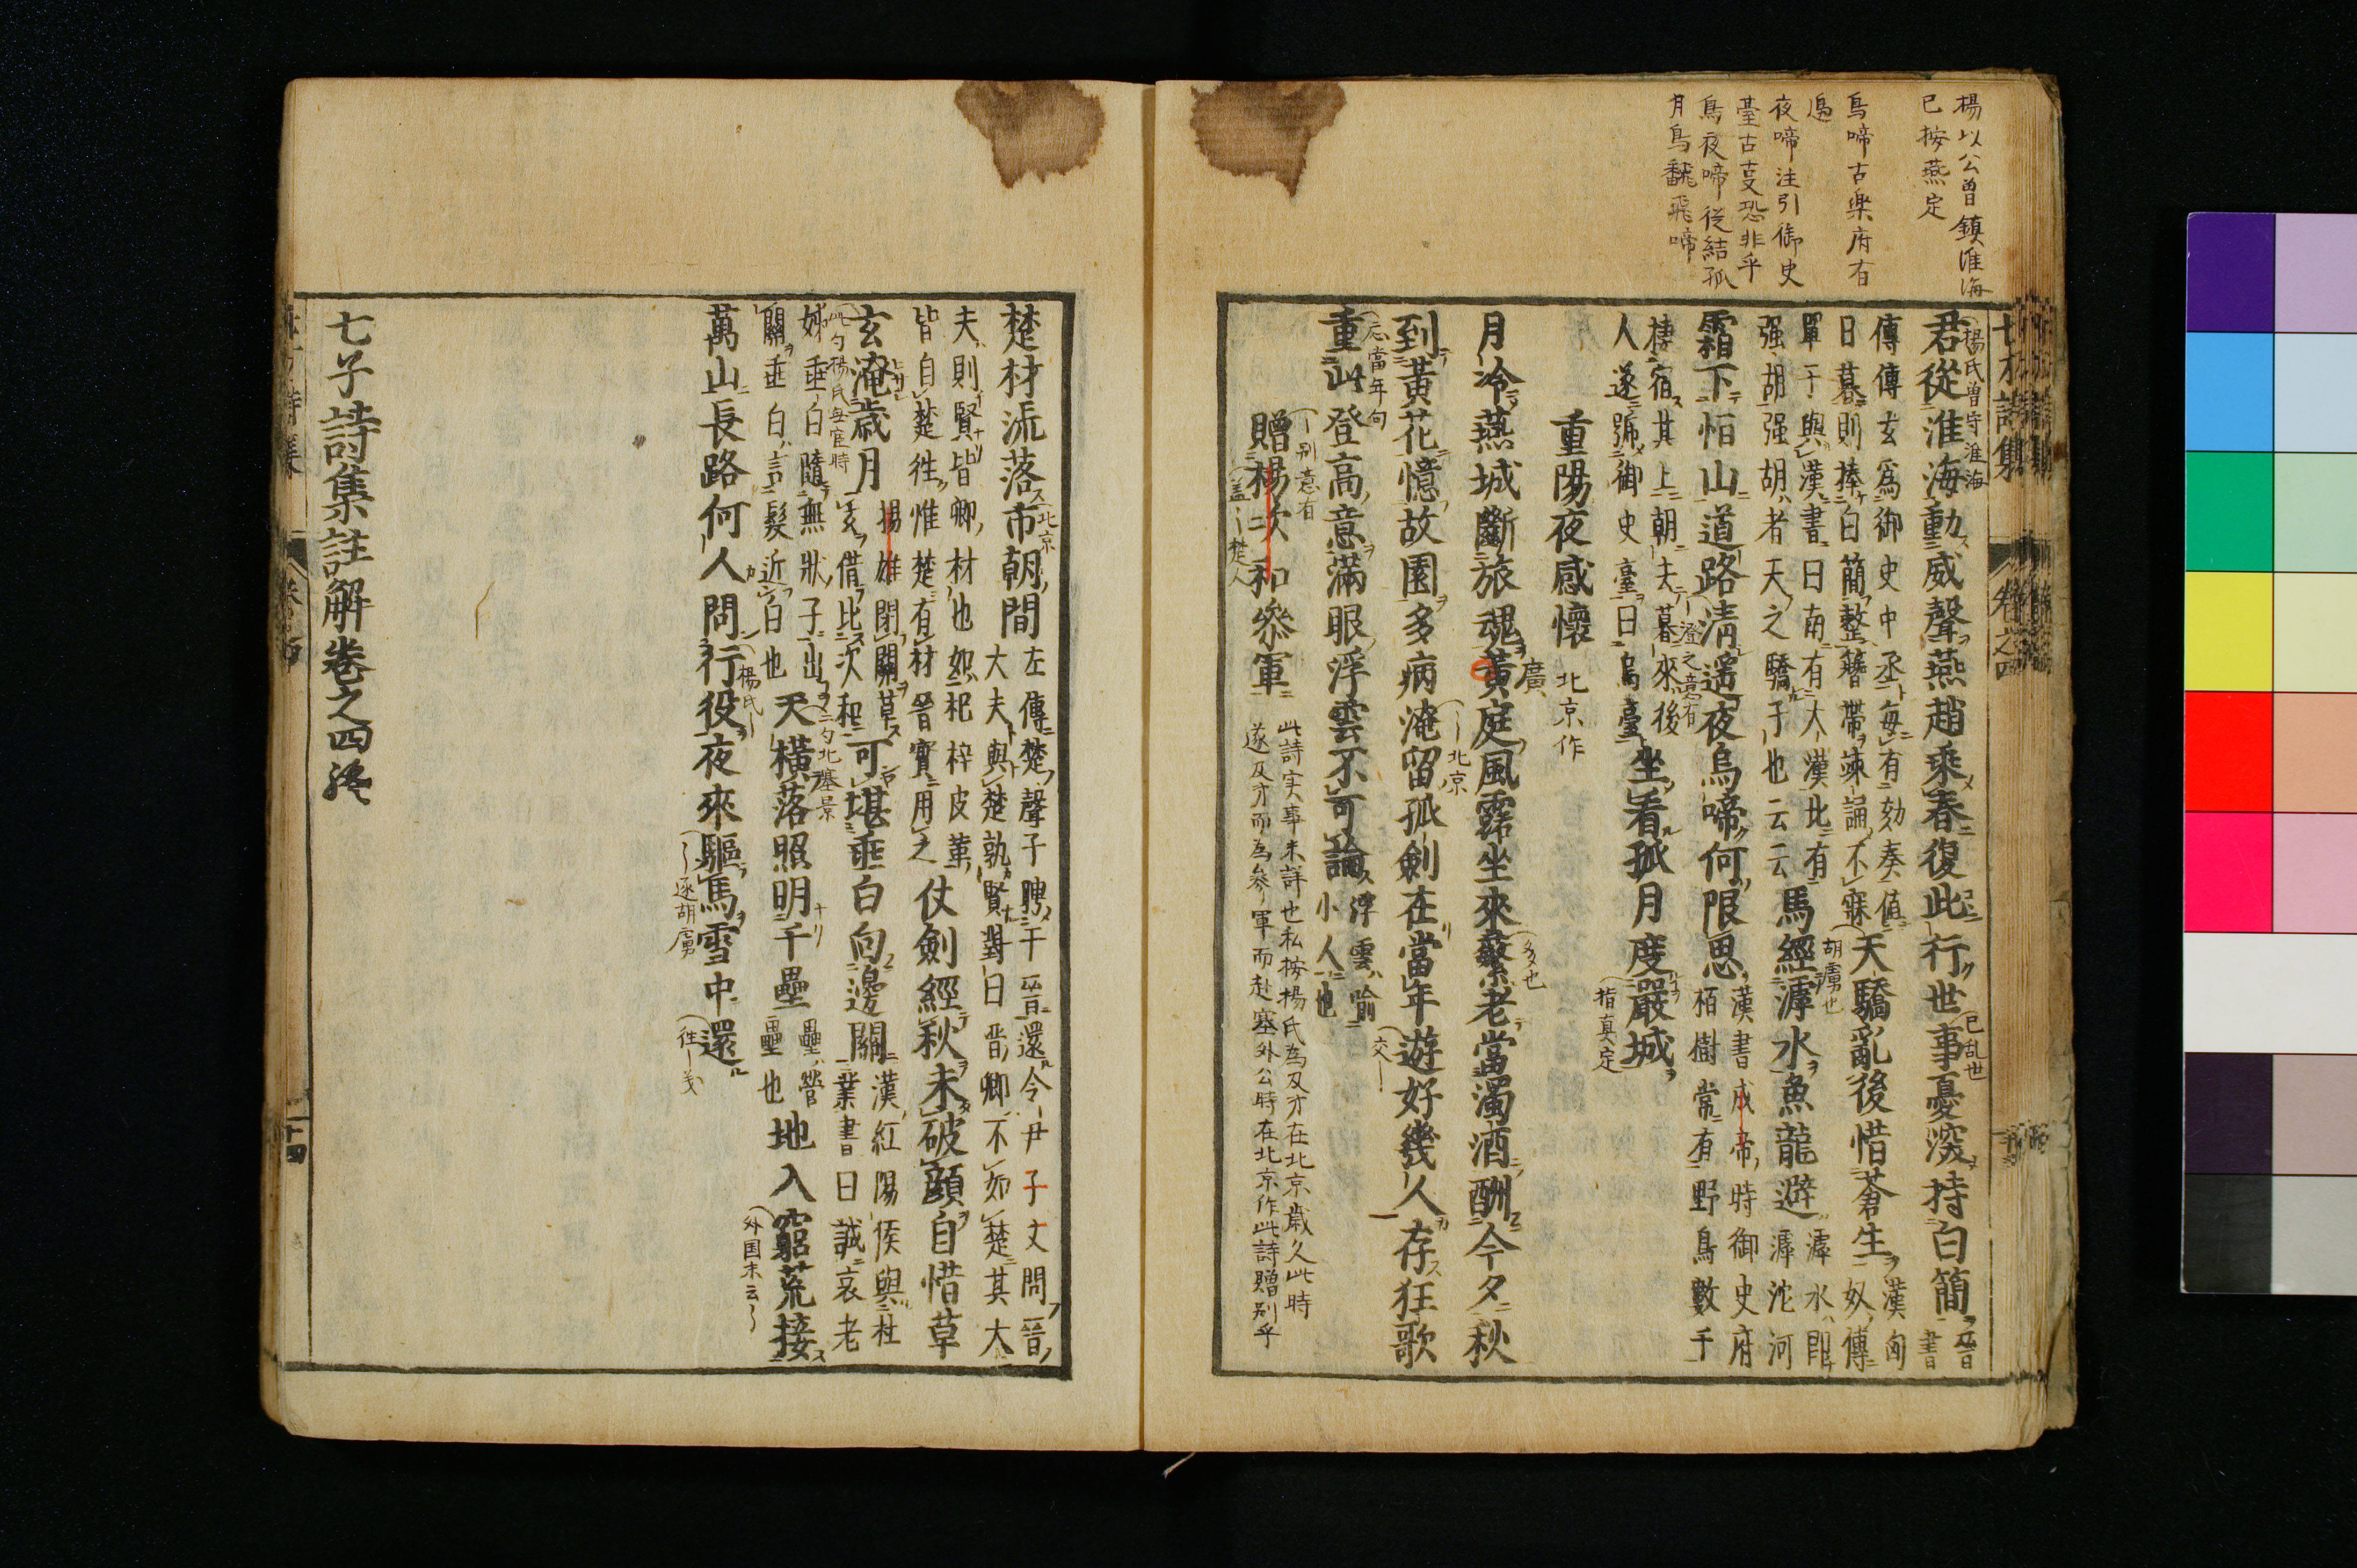 楊以公曽鎮淮海
已按燕定
烏啼古楽府有
烏
夜啼注引御史
臺古叓恐非乎
烏夜啼從結孤
月烏飜飛啼
君從淮海動威聲燕趙乘春復此行世事憂深持白簡晉書
楊氏曽守淮海
已乱世
傳傳玄爲御史中丞毎有効奏値
日暮則捧白簡整簪帶竦誦不寐
天驕亂後惜蒼生漢匈奴傳
胡虜也
單于與漢書曰南有大漢北有
强胡强胡者天之驕子也云云
馬經滹水魚龍避滹水即滹沱河
霜下栢山道路清遥夜烏啼何限思漢書成帝時御史府栢樹常有野鳥數千
澄之意有
棲宿其上朝夫暮來後
人遂號御史臺曰烏臺
坐看孤月度嚴城
指真定
重陽夜感懷北京作
月冷燕城斷旅魂黃庭風露坐來繁老當濁酒酬今夕秋
廣
多也
到黃花憶故園多病淹留孤劍在當年遊好幾人存狂歌
北京
交
忘當年句
重此登高意滿眼浮雲不可論浮雲喻小人也
別意有
贈楊次和參軍
蓋楚人
此詩实事未詳也私按楊氏為及才在北京歳久此時
遂及才而為參軍而赴塞外公時在北京作此詩贈別乎
楚材流落市朝間左傳楚聲子聘于晉還令尹子文問晉
北京
大夫與楚孰賢對曰晋卿不如楚其大
夫則賢皆卿材也如杞梓皮革
皆自楚徃惟楚有材晉實用之
仗劍經秋未破顔自惜草
玄淹歳月揚雄閉關草玄借比次和
可堪垂白向邊關漢紅陽侯與杜業書曰誠哀老
此句楊氏毎宦時
姊垂白隨無狀子出
關垂白言髮近白也
天橫落照明千壘壘營壘也
二句北塞景
地入窮荒接
外国未云
萬山長路何人問行役夜來驅馬雪中還
楊氏
逐胡虜
徃義
七子詩集註解卷之四終
十四